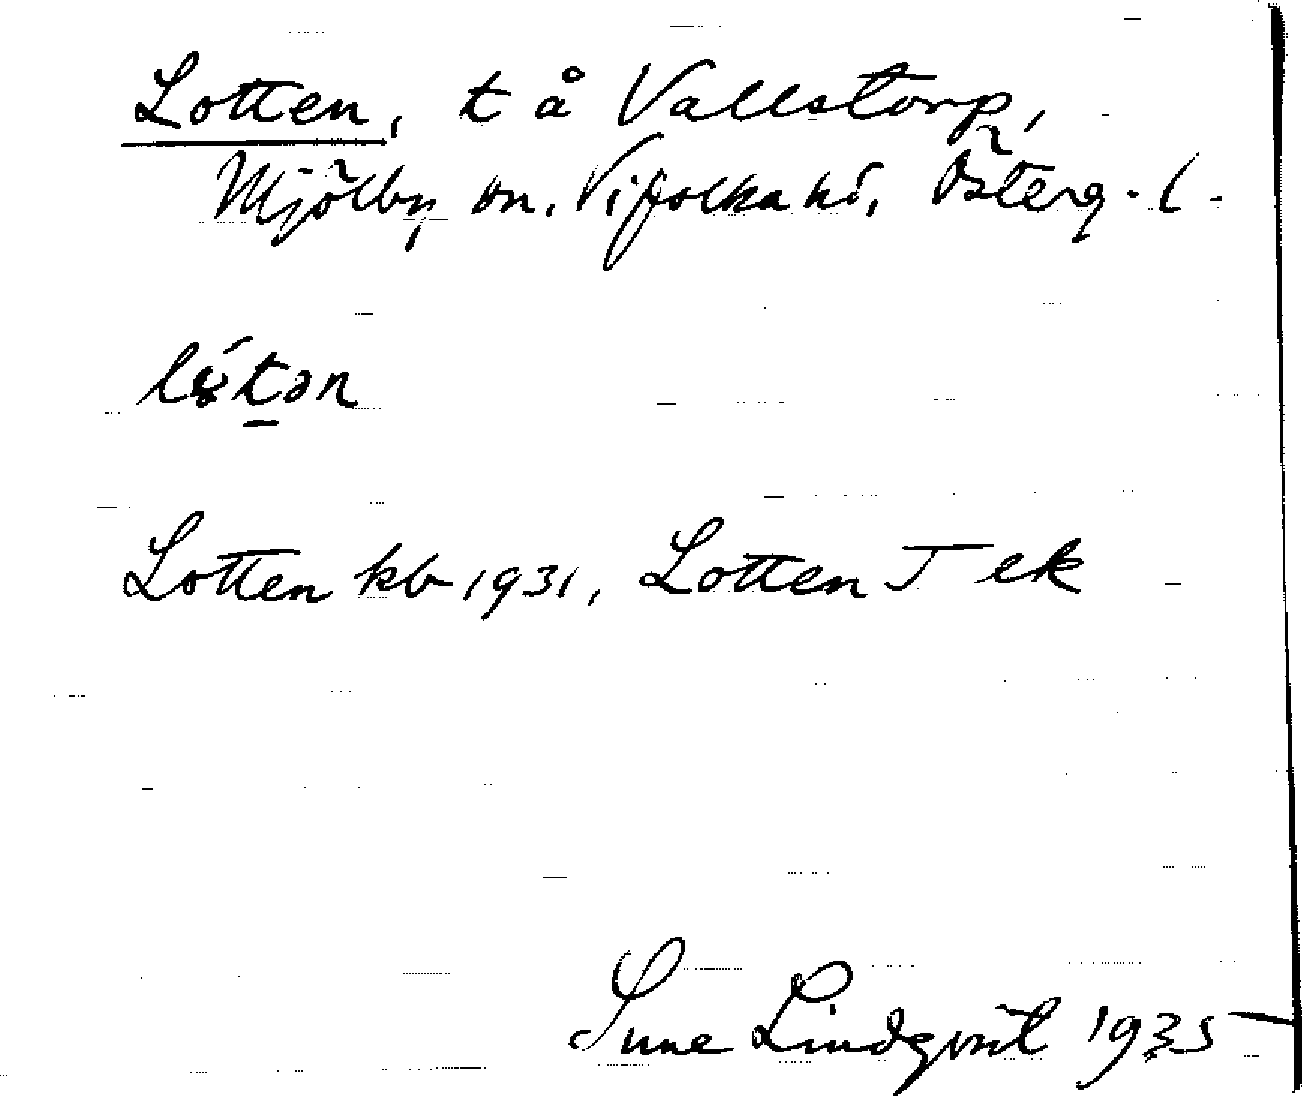 Lotten, t å Vallstorp,
Mjölby sn. Vifolka hd, Österg. l.
Lotten kb 1931, Lotten J ek
Sune Lindqvist 1935